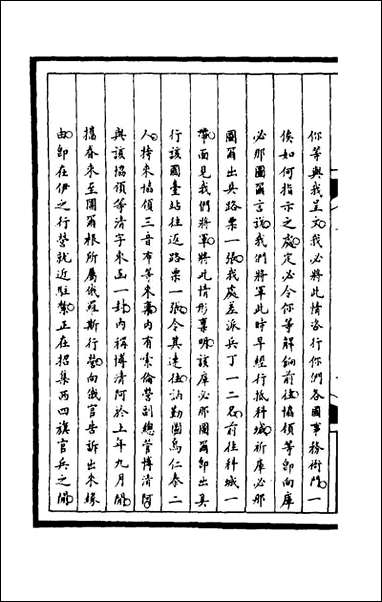 你等與我呈文我必將此情咨行你們各國事務衙門一
俟如何指示之處定必令你等解餉前往協領等即向庫
必那圖爾言說我們將軍此時早經行抵科城祈庫必那
圖爾出具路票一張我處差派兵丁一二名前往科城一
帶面見我們將軍將此情形稟明該庫必那圖爾即出具
行該國臺站往返路票一張令其速往沾勤圖烏仁泰二
人持來協領三音布等來稟內有索倫營副總管博清阿
與該協領等清字來函一封內稱博清阿於上年九月間
攜眷來至圖爾根所屬俄羅斯行營向俄官告訴出來緣
由即在伊之行營就近駐紮正在招集西四旗官兵之間